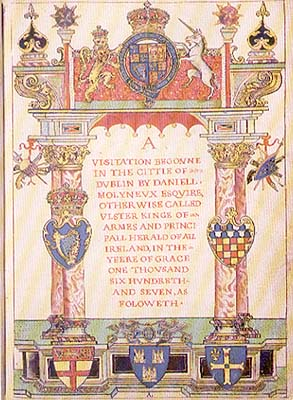 A
VISITATION BEGONNE
IN THE CITTIE OF
DUBLIN BY DANIELL
MOLYNEUX ESQUIRE,
OTHERWISE CALLED
ULSTER KINGE OF
ARMES AND PRINCI
PALL HERALD OF ALL
IRELAND, IN THE
YEERE OF GRACE
ONE THOUSAND
SIX HUNDRETH
AND SEVEN, AS
FOLOWETH.